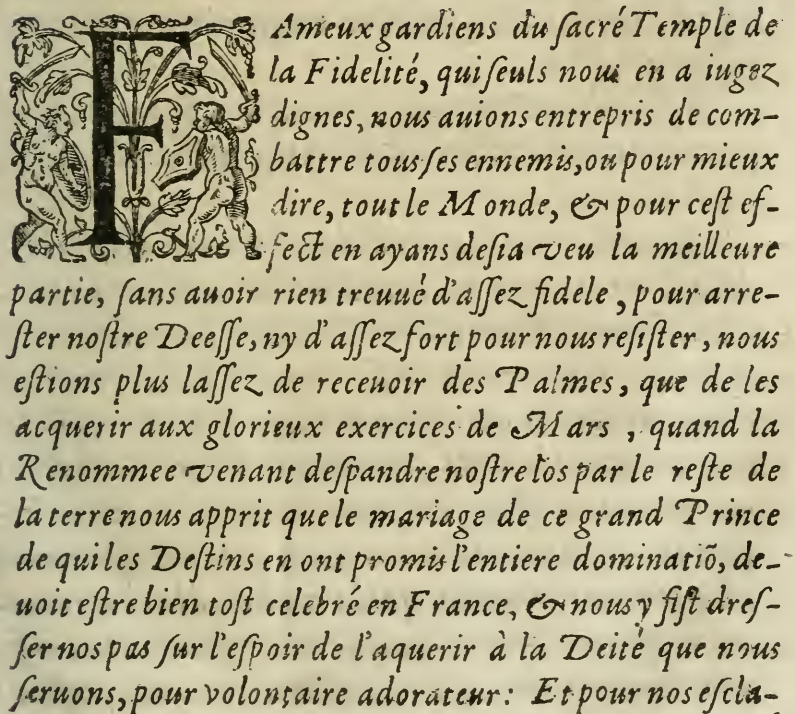 FAmeux gardiens du ſacré Temple de
la Fidelité, qui ſeuls nous en a iugez
dignes, nous auions entrepris de com-
battre tous ſes ennemis, ou pour mieux
dire, tout le Monde, & pour ceſt ef-
fect en ayans deſia veu la meilleure
partie, ſans auoir rien treuué d'aſſez fidele, pour arre-
ſter noſtre Deeſſe, ny d'aſſez fort pour nous reſiſter, nous
eſtions plus laſſez de receuoir des Palmes, que de les
acquerir aux glorieux exercices de Mars, quand la
Renommee venant deſpandre noſtre los par le reſte de
la terre nous apprit que le mariage de ce grand Prince
de qui les Deſtins en ont promis l'entiere dominatiõ, de-
uoit eſtre bien toſt celebré en France, & nous y fiſt dreſ-
ſer nos pas ſur l'eſpoir de l'aquerir à la Deité que nous
ſeruons, pour volontaire adorateur: Et pour nos eſcla-